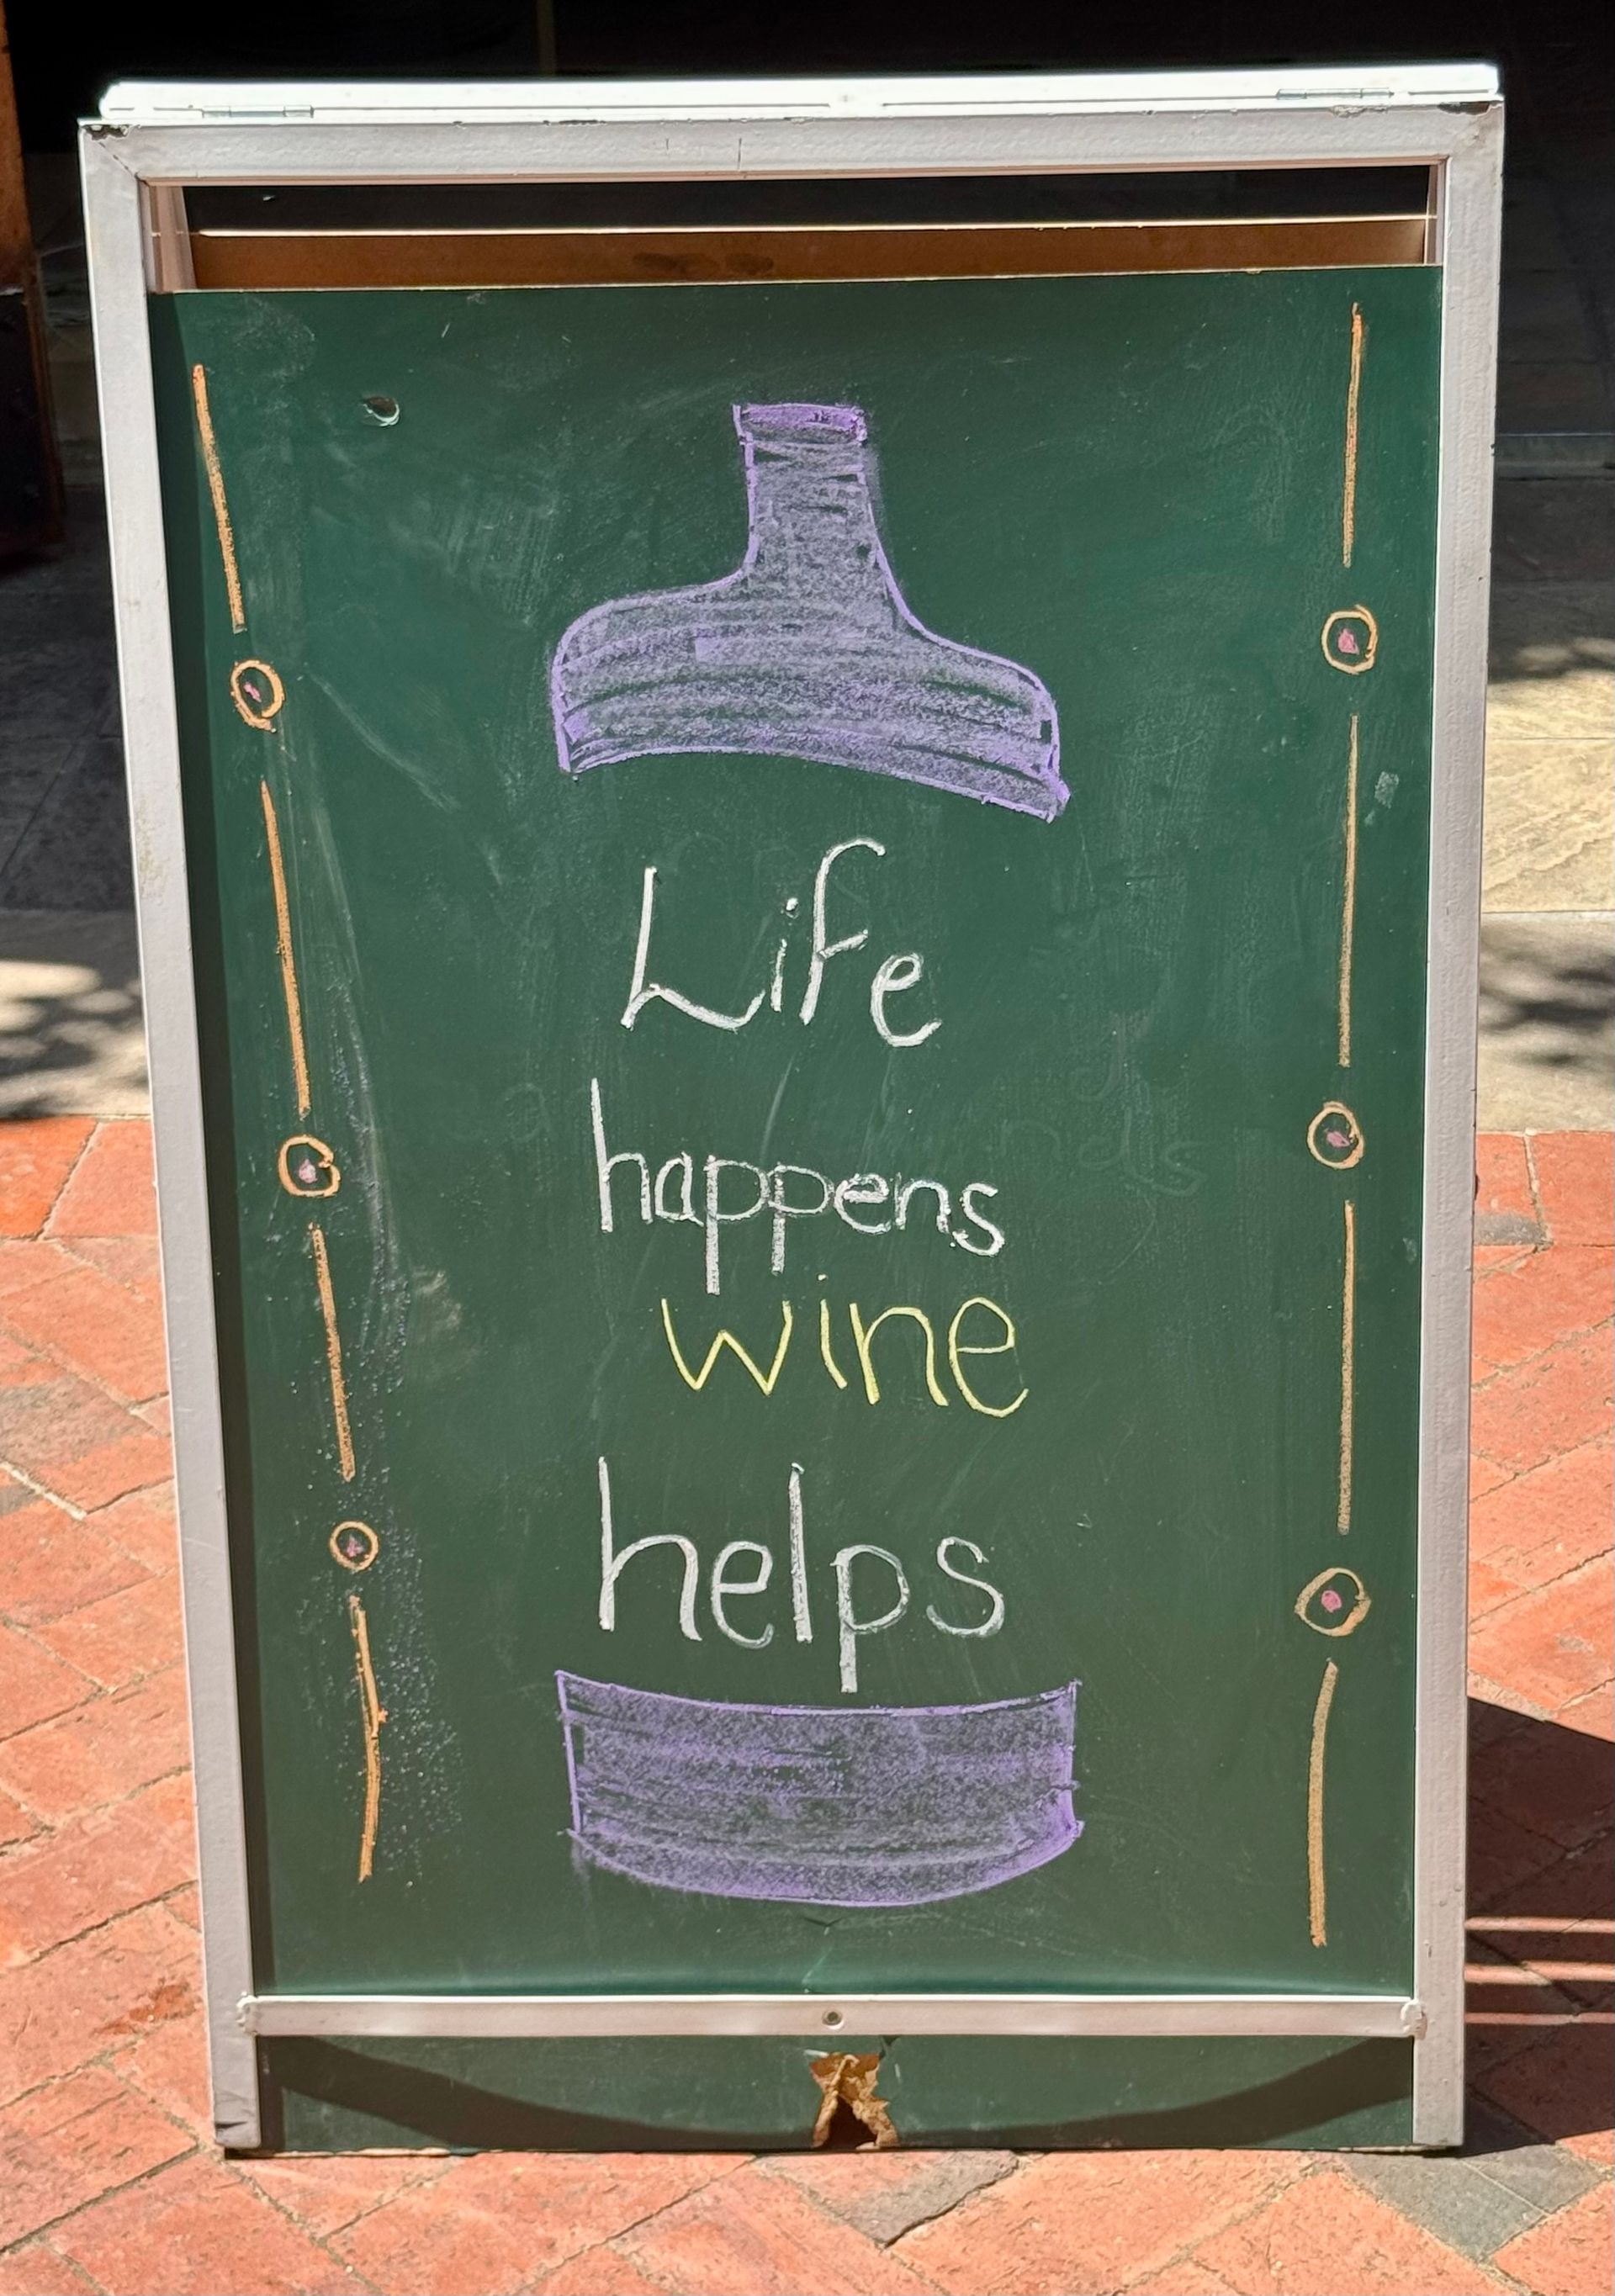 Life
happens
wine
helps